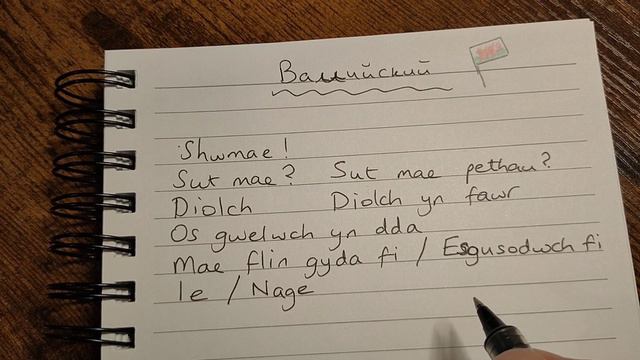 Валлийский
Shwmae!
Sut mae? Sut mae pethau?
Diolch Diolch yn fawr
Os gwelwch yn dda
Mae flin gyda fi / Esgusodwch fi
Ie / Nage